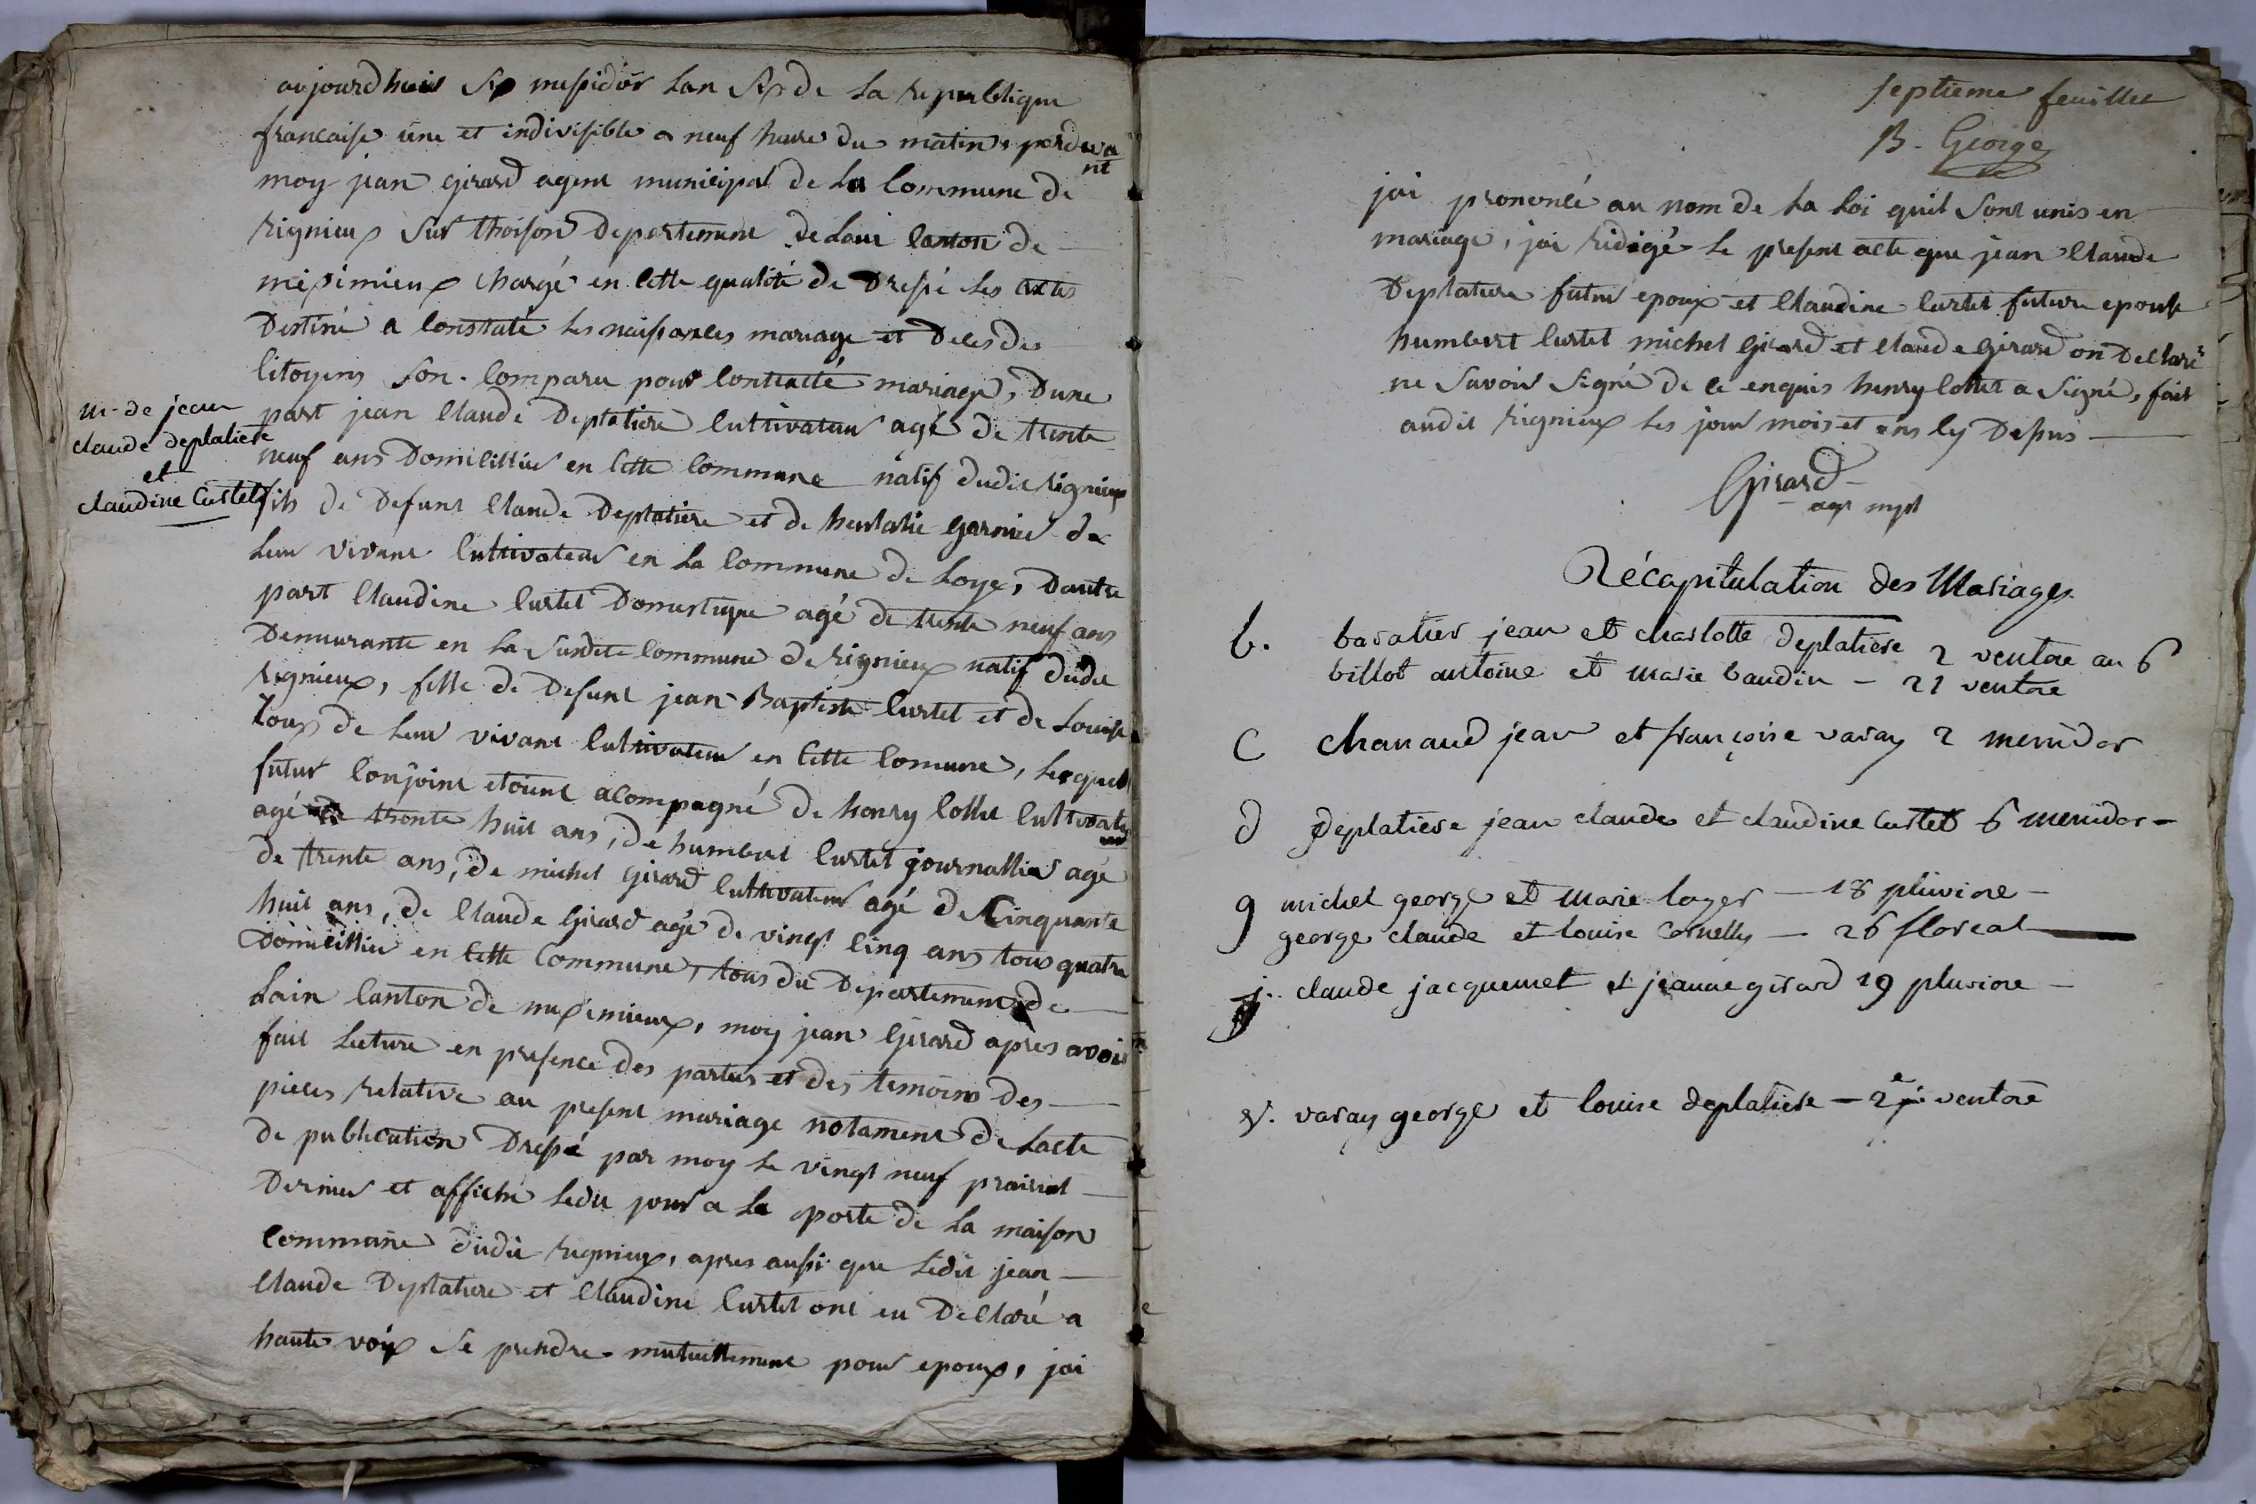 aujourdhuit six messidor lan six de la republique
francaise une et indivisible a neuf heure du matin pardeva
nt
moy jean girard agent municipal de la Commune de
rignieux sur thoison Departement de lain Canton de
meximieux Chargé en Cette qualité de Dressé les actes
Destiné a Constaté les naissances mariage et Deces des
Citoyens Son Comparu pour Contracté mariage, Dune
part jean Claude Deplatiere Cultivateur agé de trente
neuf ans Domicillié en Cette Commune natif dudit rignieux
fils de Defunt Claude Deplatiere et de garnier de
leur vivant Cultivateur en la Commune de Loye, Dautre
part Claudine Curtet Domestique agé de trente neuf ans
Demeurante en la Susdite Commune de rignieux natif dudit
rignieux, fille de Defunt jean Baptiste Curtet et de Louise
de leur vivant Cultivateur en Cette Comune, lesquel
futur Conjoint etoint acompagné de henry Collet Cultivateur
agé de trente huit ans, de humbert Curtet journallier agé
de trente ans, de michel girard Cultivateur agé de Cinquante
huit ans, de Claude Girard agé de vingt Cinq ans tous quatre
Domicillié en Cette Commune, tous du Departement de
Lain Canton de meximieux, moy jean Girard apres avoir
fait lecture en presence des parties et des temoins des
pieces relative au present mariage notament de lacte
de publication Dressé par moy le vingt neuf prairial
Dernier et affiché ledit jour a la porte de la maison
Commune dudit rignieux, apres aussi que ledit jean
Claude Deplatiere et Claudine Curtet ont eu Declaré a
haute voix Se prendre mutuellement pour epoux, jai
m. de jean
claude deplatiere
et
claudine Curtet
septieme feuillet
B. George
jai prononcé au nom de la Loi quil Sont unis en
mariage, jai redigé le present acte que jean Claude
Deplatiere futur epoux et Claudine Curtet future epouse
humbert Curtet michel Girard et Claude Girard on Declaré
ne Savoir Signé de ce enquis henry Collet a Signé, fait
audit rignieux les jour mois et ans Cy Depus
Girard
agt mpl
Récapitulation des Mariages
b. baratier jean et charlotte deplatiere 2 ventose an 6
billot antoine et marie baudin - 21 ventose
C chanaud jean et françoise varay 2 messidor
d deplatiere jean claude et claudine Curtet 6 messidor -
g michel george et marie loyer - 18 pluviose -
george claude et louise Cornelly - 26 floreal
j. claude jacquemet et jeanne girard 19 pluviose -
v. varay george et louise deplatiere - 2 ventose